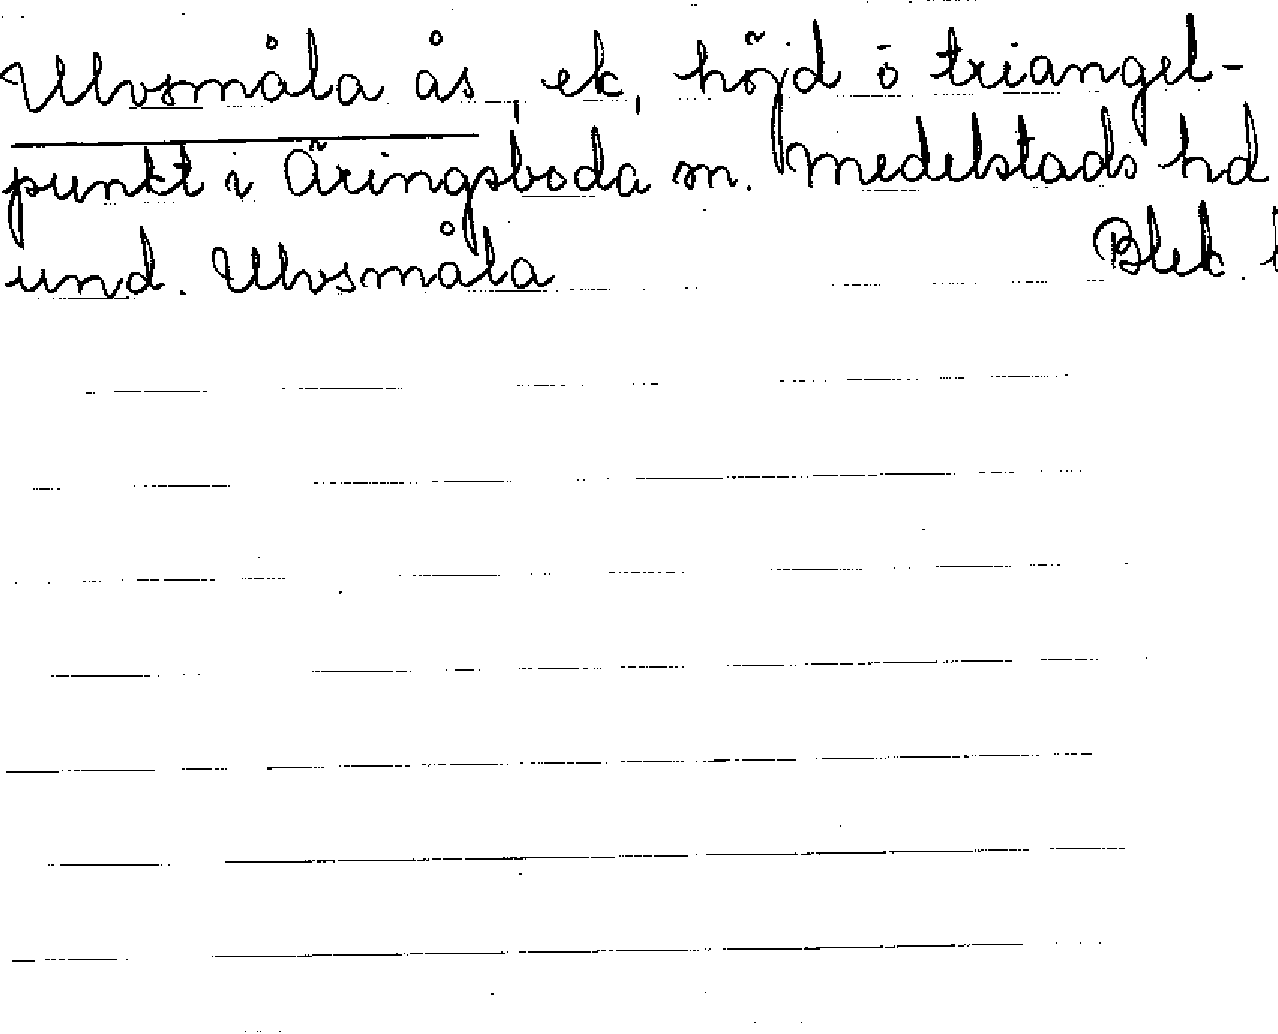 Ulvsmåla ås, ek, höjd o triangel-
punkt i Äringsboda sn. Medelstads hd
und. Ulvsmåla Blek. l